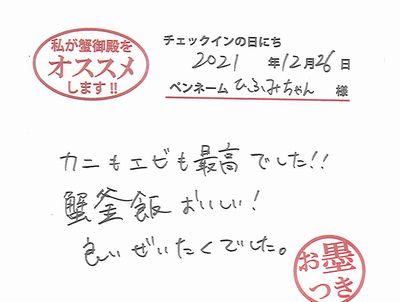 私が蟹御殿を
オススメ
します!!
チェックインの日にち
2021 年 12月 26 日
ペンネーム ひふみちゃん 様
カニもエビも最高でした!!
蟹釜飯おいしい!
良いぜいたくでした。
お墨
つき